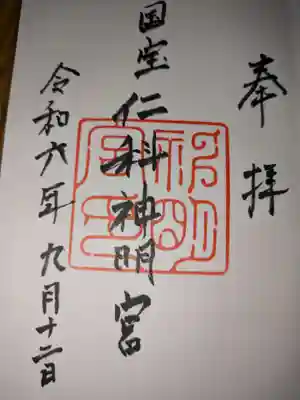 奉拝
国宝 仁科神明宮
令和六年九月十二日